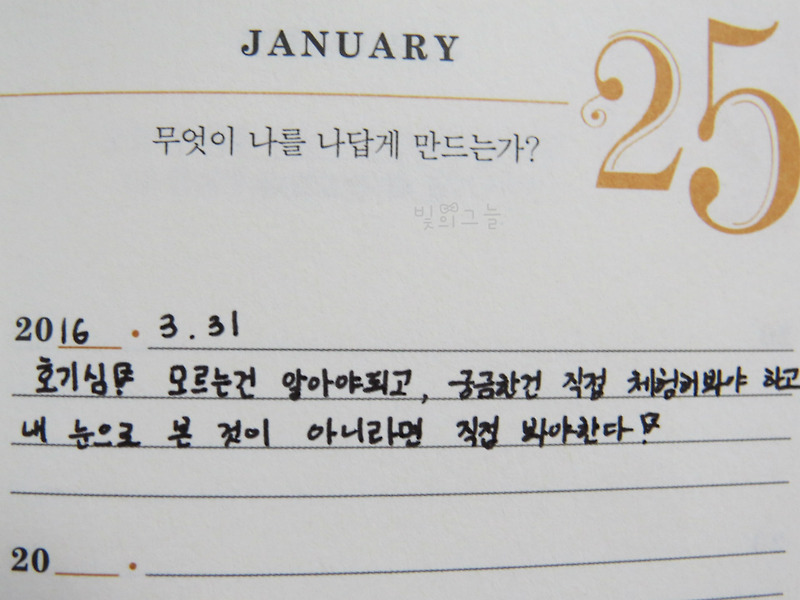 JANUARY
25
무엇이 나를 나답게 만드는가?
빛의그늘
2016 · 3.31
호기심! 모르는건 알아야되고, 궁금한건 직접 체험해봐야 하고
내 눈으로 본 것이 아니라면 직접 봐야한다!
20 ·